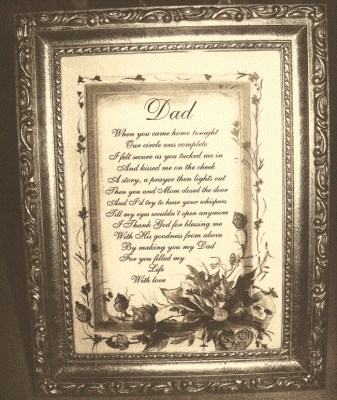 Dad
When you came home tonight
Our circle was complete
I felt secure as you tucked me in
And kissed me on the cheek
A story, a prayer then lights out
Then you and Mom closed the door
And I'd try to hear your whispers
Till my eyes wouldn't open anymore
I Thank God for blessing me
With His goodness from above
By making you my Dad
For you filled my
Life
With love